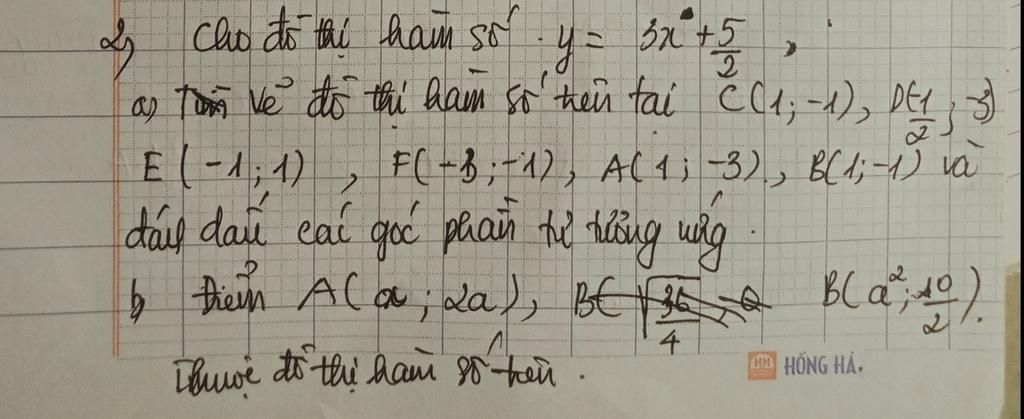 2) Cho đồ thị hàm số y = 3x + 5/2 ,
a) Vẽ đồ thị hàm số trên tại C(1; -1), D(-1/2; -3)
E(-1; 1), F(-3; -1), A(1; -3), B(1; -1) và
đánh dấu các góc phần tư tương ứng.
b) Điểm A(a; 2a), B(a²; 10/2).
Thuộc đồ thị hàm số trên.
HH HỒNG HÀ.